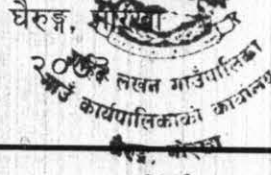 घैरुङ्ग, गोरखा
२०७३
लखन गाउँपालिका
गाउँ कार्यपालिकाको कार्यालय
घैरुङ, गोरखा